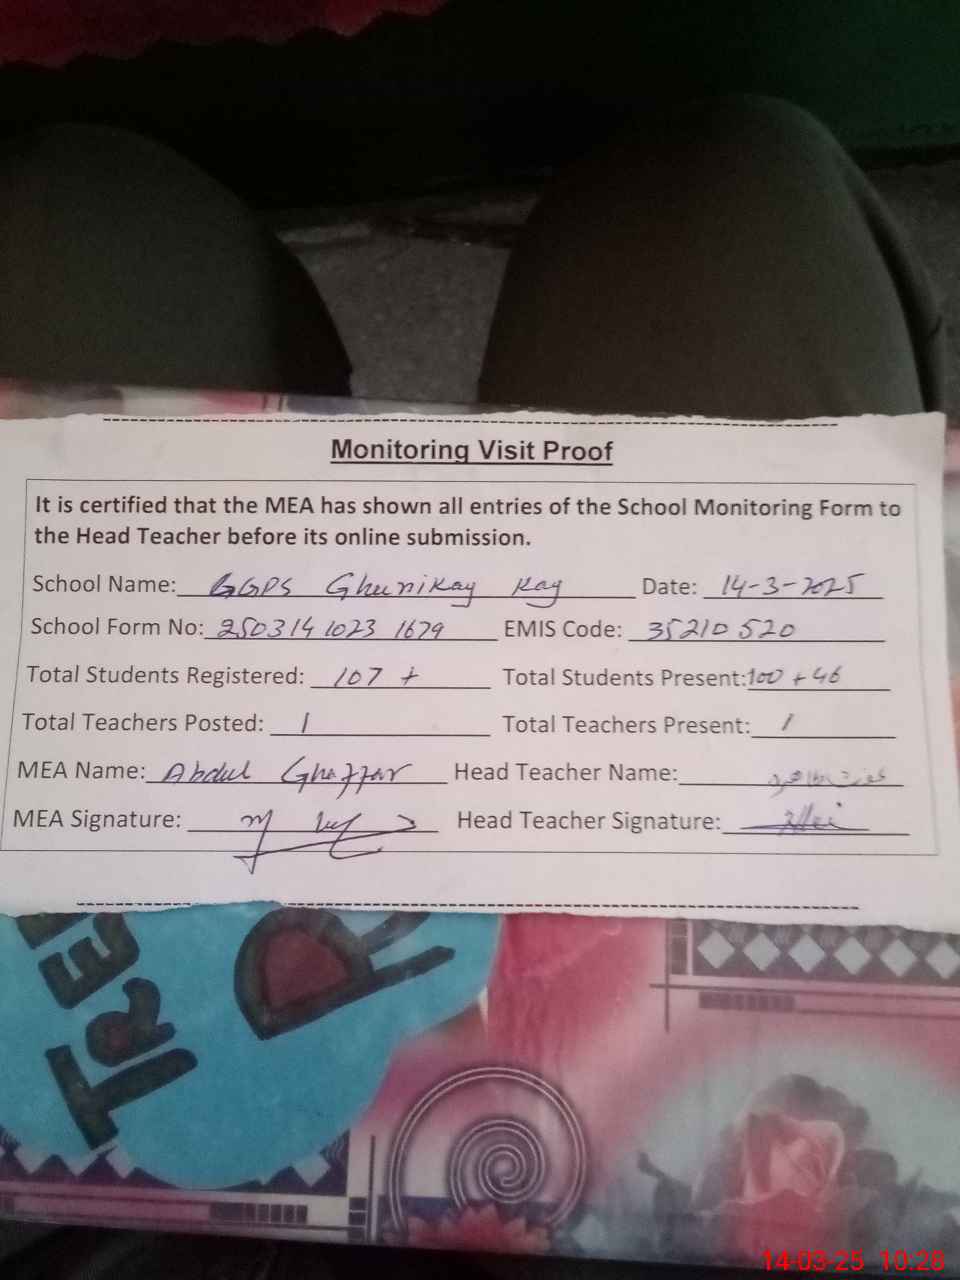 Monitoring Visit Proof
It is certified that the MEA has shown all entries of the School Monitoring Form to
the Head Teacher before its online submission.
School Name: GGPS Ghunikay Kay Date: 14-3-2025
School Form No: 250314 1023 1679 EMIS Code: 35210 520
Total Students Registered: 107 + Total Students Present: 100 + 46
Total Teachers Posted: 1 Total Teachers Present: 1
MEA Name: Abdul Ghaffar Head Teacher Name:
MEA Signature: Head Teacher Signature:
TREE
14-03-25 10:28